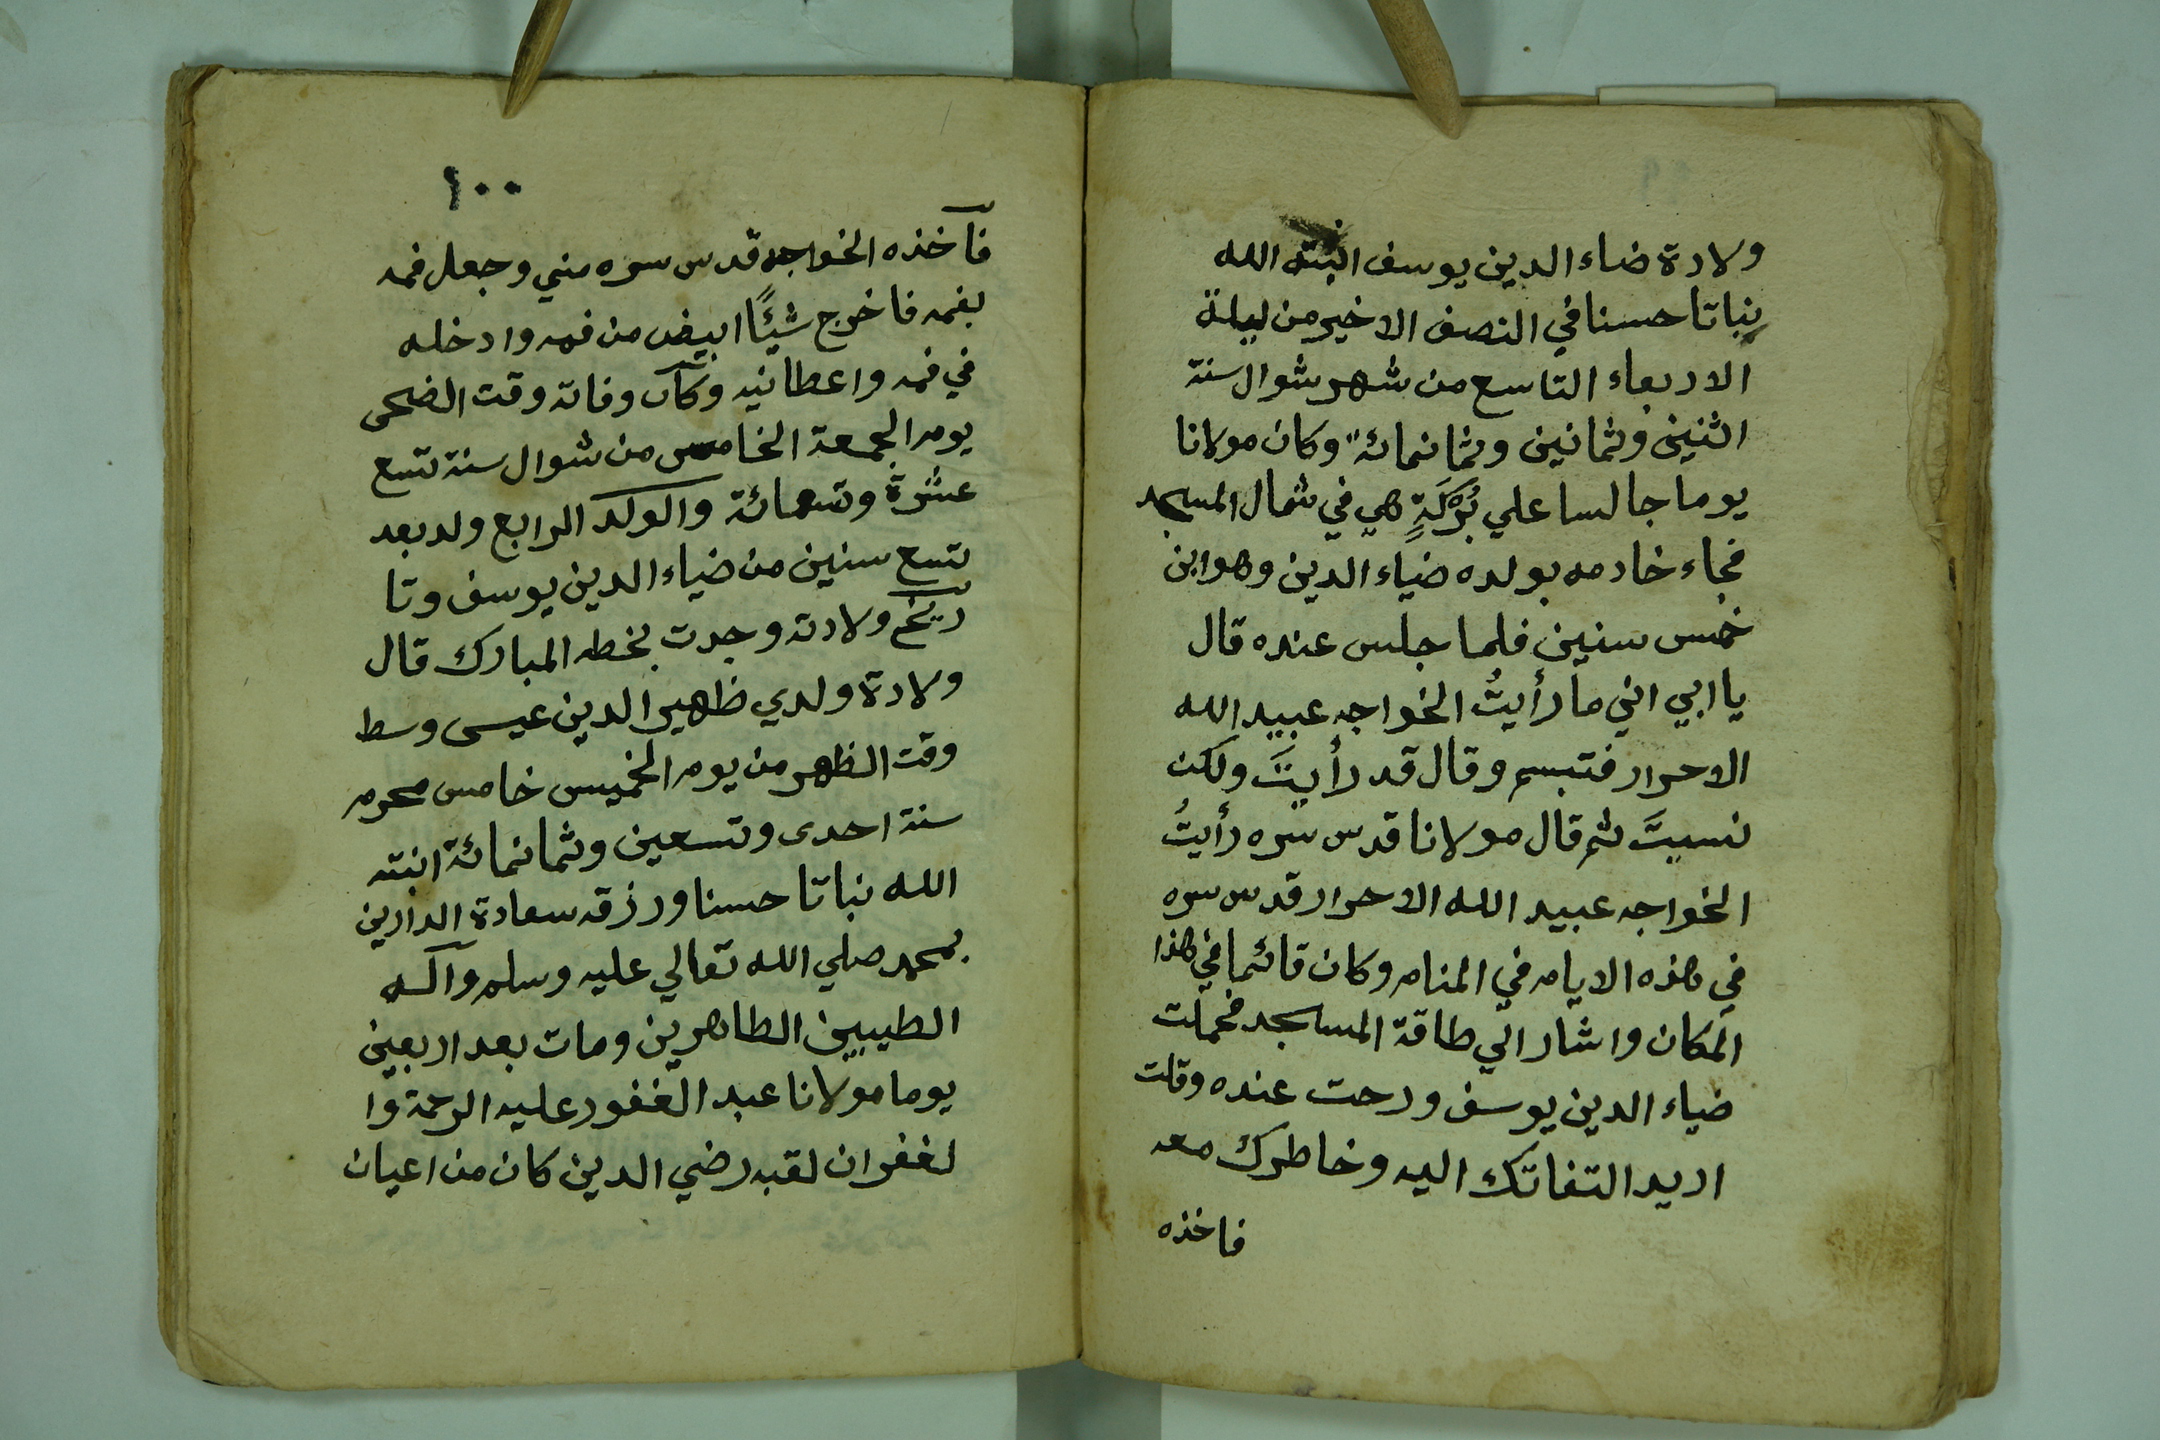 ولادة ضاء الدين يوسف انبته الله
نباتا حسنا في النصف الاخير من ليلة
الاربعاء التاسع من شهر شوال سنة
اثنين وثمانين وثمانمائة وكان مولانا
يوما جالسا علي بُرْكَةٍ هي في شمال المسجد
فجاء خادمه بولده ضياء الدين وهو ابن
خمس سنين فلما جلس عنده قال
يا ابي اني ما رأيتُ الخواجه عبيد الله
الاحرار فتبسم وقال قد رأيتَ ولكن
نسيتَ ثم قال مولانا قدس سره رأيتُ
الخواجه عبيد الله الاحرار قدس سره
في هذه الايام في المنام وكان قائما في هذا
المكان واشار الي طاقة المسجد فحملت
ضياء الدين يوسف ورحت عنده وقلت
اريد التفاتك اليه وخاطرك معه
فاخذه
١٠٠
فآخذه الخواجه قدس سره مني وجعل فمه
بفمه فاخرج شئًا ابيض من فمه وادخله
في فمه واعطانيه وكآن وفاته وقت الضحى
يوم الجمعة الخامس من شوال سنة تسع
عشرة وتسعمائة والولد الرابع ولد بعد
تسع سنين من ضياء الدين يوسف وتا
ريخ ولادته وجدت بخطه المبارك قال
ولادة ولدي ظهير الدين عيسى وسط
وقت الظهر من يوم الخميس خامس محرم
سنة احدى وتسعين وثمانمائة انبته
الله نباتا حسنا ورزقه سعادة الدارين
بمحمد صلي الله تعالي عليه وسلم وآله
الطيبين الطاهرين ومات بعد اربعين
يوما مولانا عبد الغفور عليه الرحمة وا
لغفران لقبه رضي الدين كان من اعيان